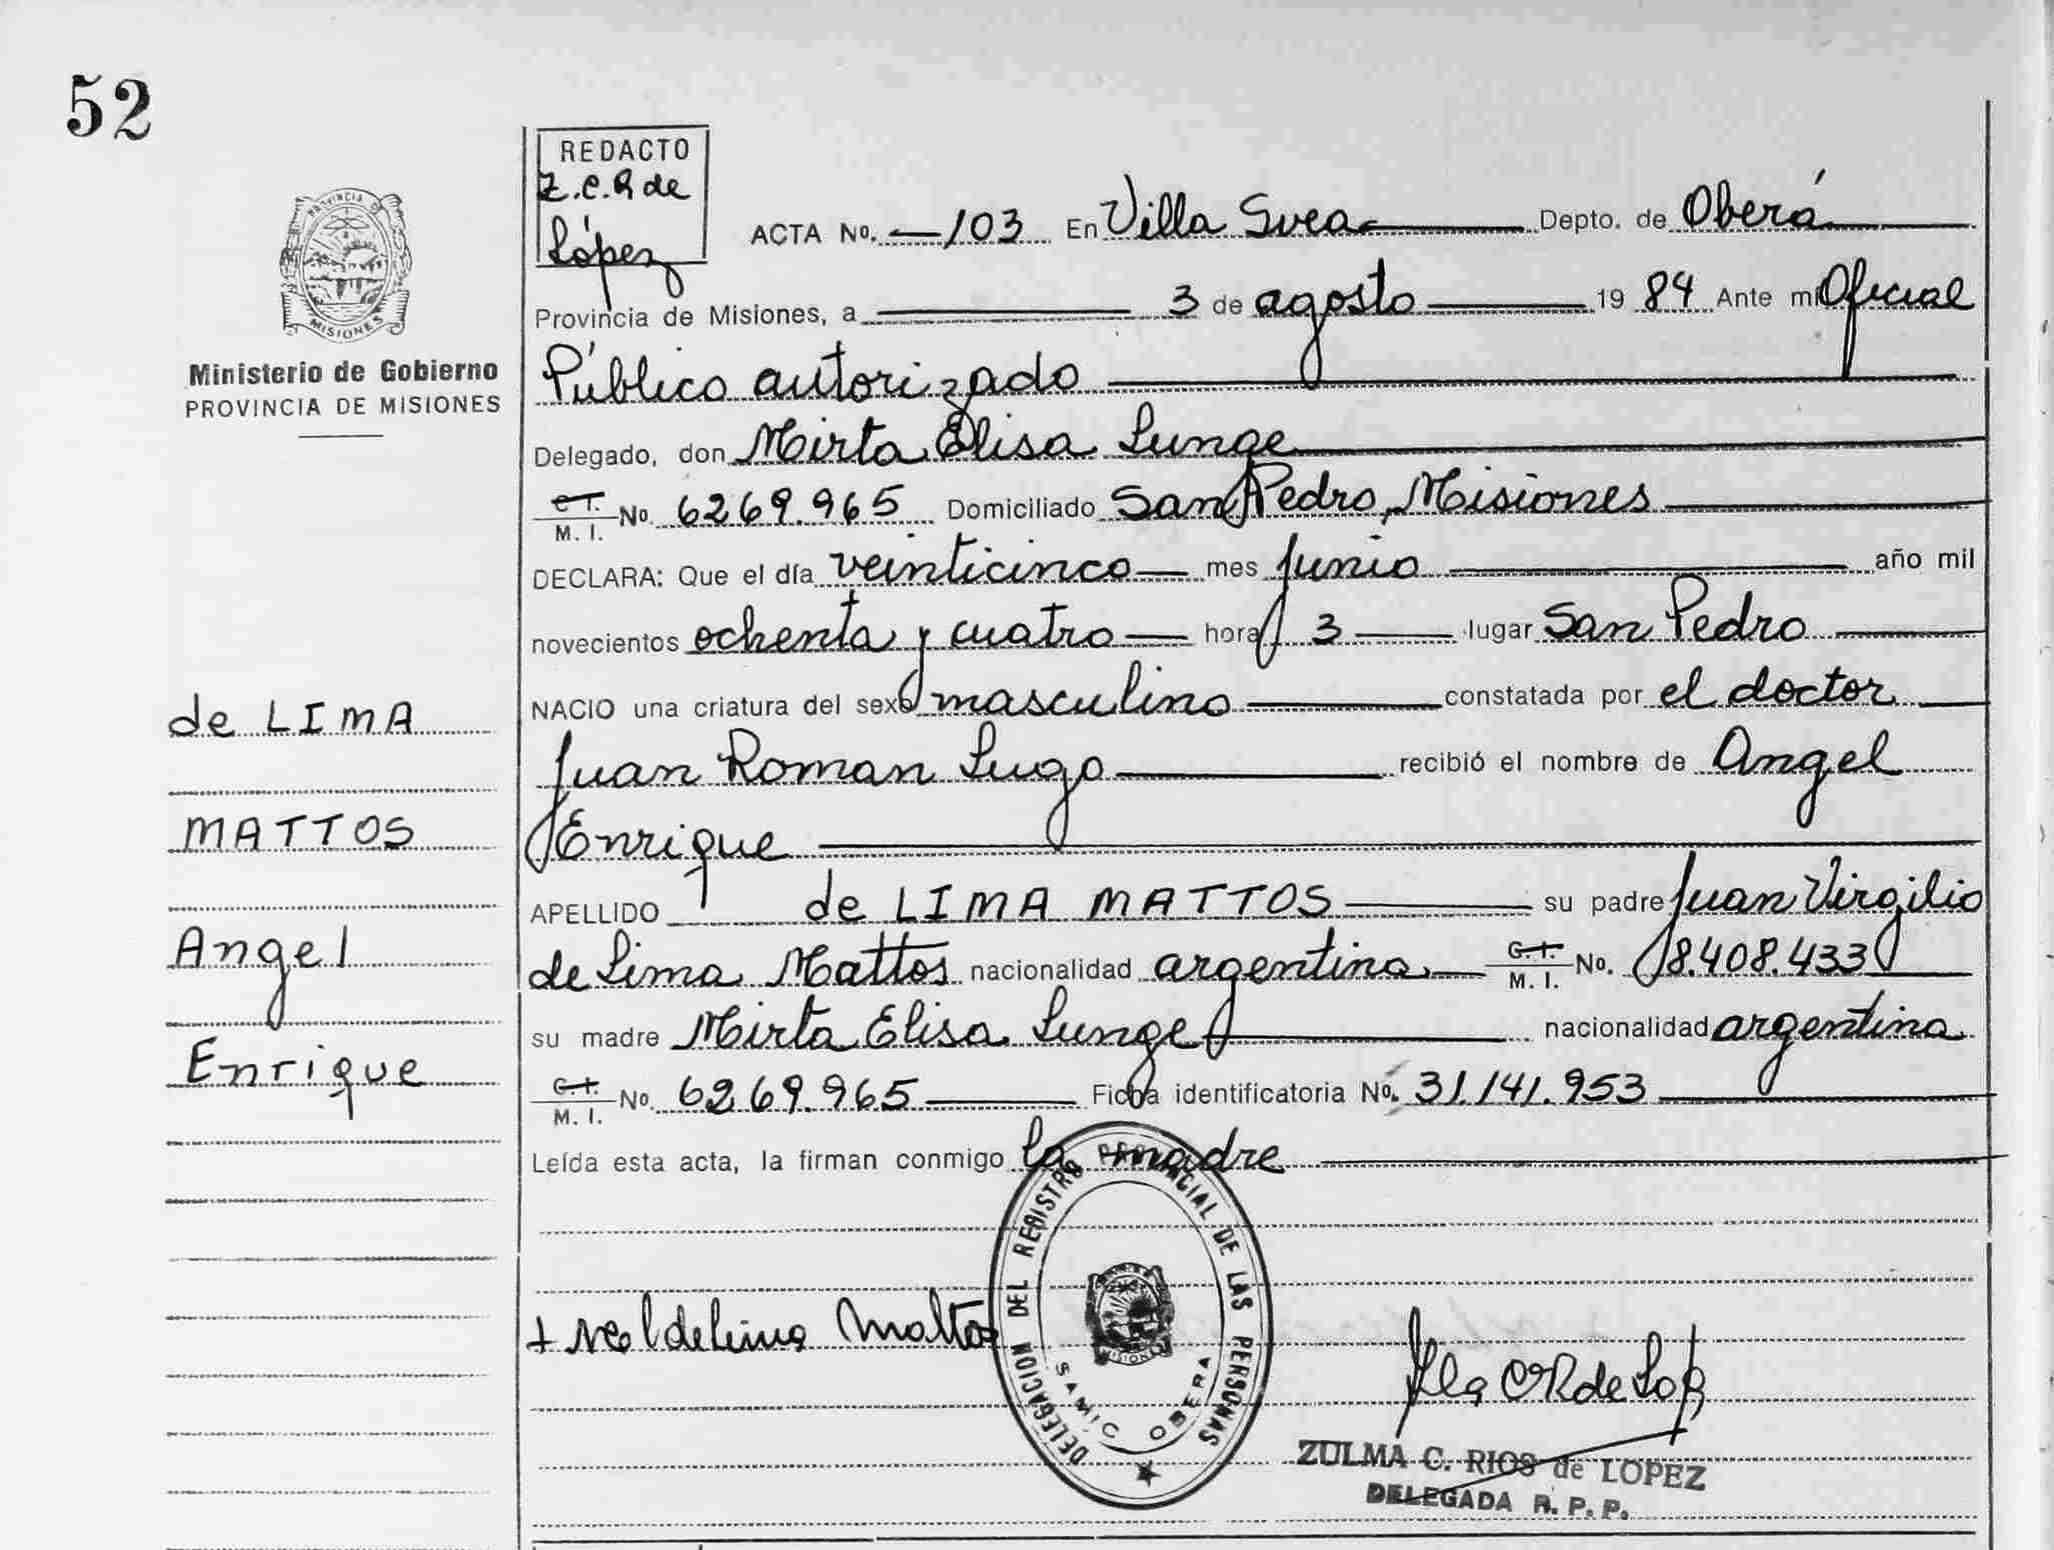 52
PROVINCIA DE
MISIONES
Ministerio de Gobierno
PROVINCIA DE MISIONES
de LIMA
MATTOS
Angel
Enrique
REDACTO
Z.C.R de
López
ACTA No. 103 En Villa Svea Depto. de Oberá
Provincia de Misiones, a 3 de agosto 1984 Ante mi Oficial
Público autorizado
Delegado, don Mirta Elisa Lunge
C.I. M. I. No. 6269.965 Domiciliado San Pedro, Misiones
DECLARA: Que el día veinticinco mes Junio año mil
novecientos ochenta y cuatro hora 3 lugar San Pedro
NACIO una criatura del sexo masculino constatada por el doctor
Juan Roman Lugo recibió el nombre de Angel
Enrique
APELLIDO de LIMA MATTOS su padre Juan Virgilio
de Lima Mattos nacionalidad argentina C.I. M. I. No. 8.408.433
su madre Mirta Elisa Lunge nacionalidad argentina
C.I. M. I. No. 6269.965 Ficha identificatoria No. 31.141.953
Leída esta acta, la firman conmigo la madre
DELEGACION DEL REGISTRO PROVINCIAL DE LAS PERSONAS
SAMIC OBERA
MISIONES
de Lima Mattos
ZULMA C. RIOS de LOPEZ
DELEGADA R. P. P.